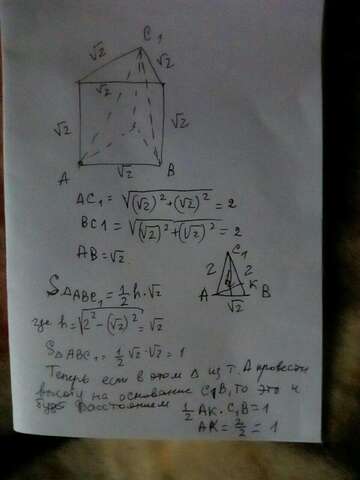 C1
√2
√2
√2
√2
√2
√2
A
B
AC₁ = √((√2)² + (√2)²) = 2
BC1 = √((√2)² + (√2)²) = 2
AB = √2
C1
2
2
h
K
A
B
√2
S△ABC₁ = 1/2 h·√2
где h = √(2² - (√2)²) = √2
S△ABC₁ = 1/2 √2·√2 = 1
Теперь если в этом △ из т. A провести
высоту на основание C₁B, то это и
будет расстоянием
1/2 AK·C₁B = 1
AK = 2/2 = 1